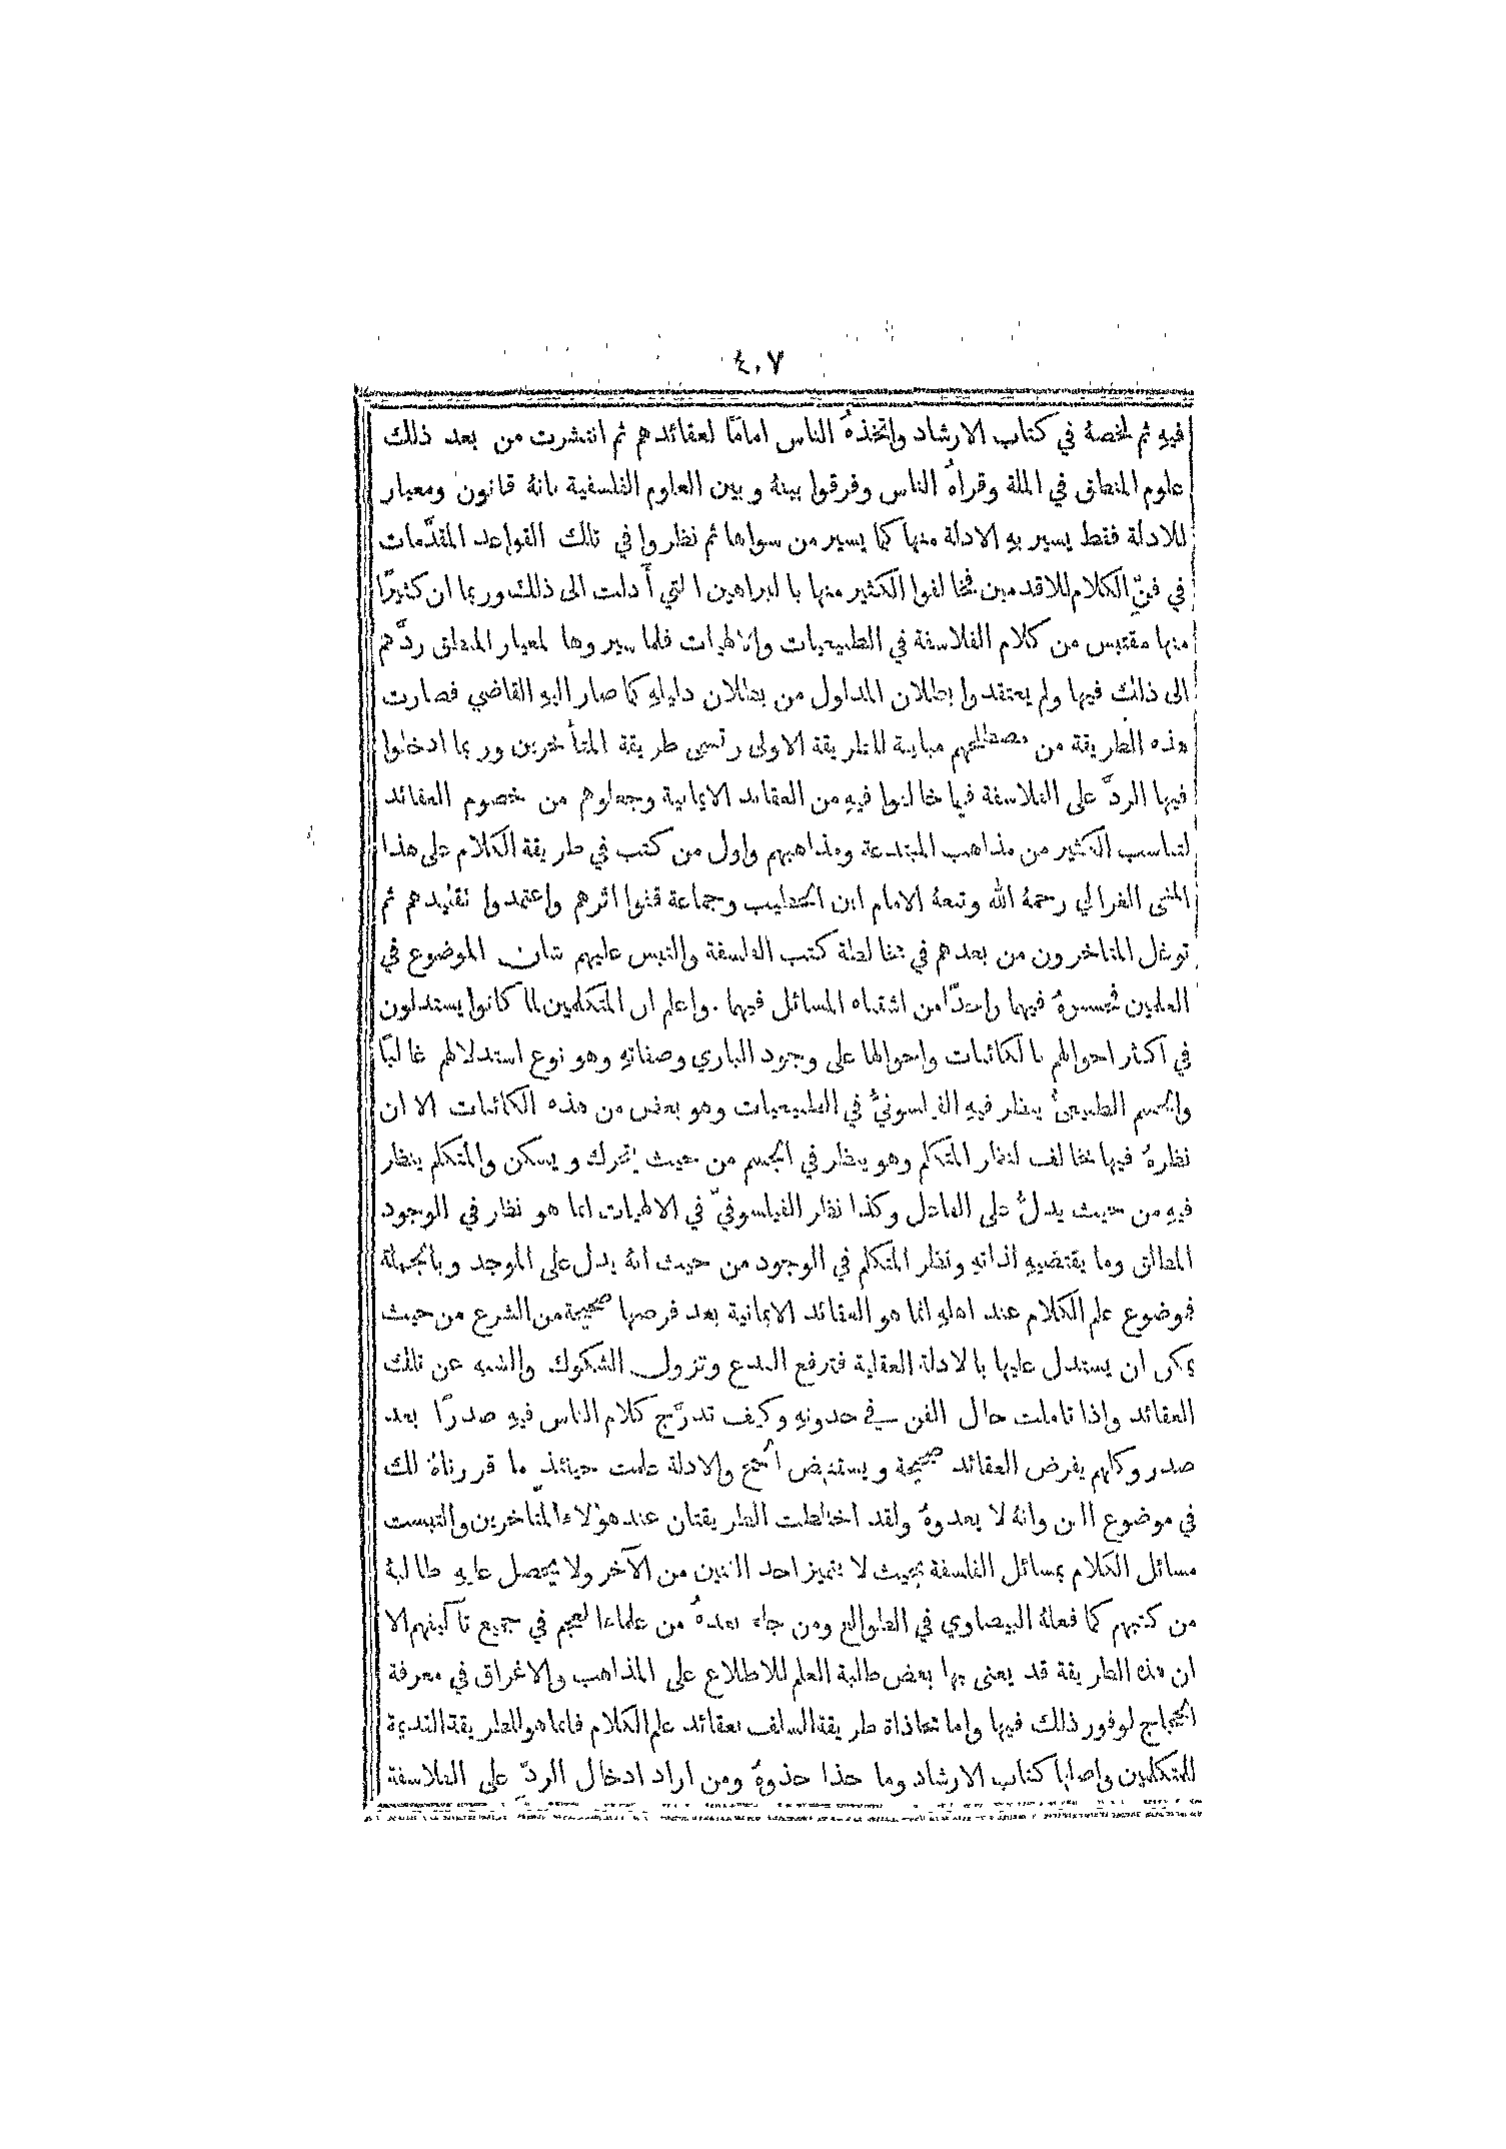 ٤٠٧
فيهِ ثم لخصهُ في كتاب الارشاد واتخذهُ الناس امامًا لعقائدهم ثم انتشرت من بعد ذلك
علوم المنطق في الملة وقراهُ الناس وفرقوا بينهُ وبين العلوم الفلسفية بانهُ قانون ومعيار
للادلة فقط يسير بهِ الادلة منها كما يسير من سواها ثم نظروا في تلك القواعد المقدَّمات
في فنّ الكلام للاقدمين فخالفوا الكثير منها بالبراهين التي أدلت الى ذلك وربما ان كثيرًا
منها مقتبس من كلام الفلاسفة في الطبيعيات والالهيات فلما سيروها لمعيار المنطق ردَّهم
الى ذلك فيها ولم يعتقدوا بطلان المدلول من بطلان دليلهِ كما صار اليهِ القاضي فصارت
هذه الطريقة من مصطلحهم مباينة للطريقة الاولى وتسمى طريقة المتأخرين وربما ادخلوا
فيها الردَّ على الفلاسفة فيما خالفوا فيهِ من العقائد الايمانية وجعلوهم من خصوم العقائد
لتناسب الكثير من مذاهب المبتدعة ومذاهبهم واول من كتب في طريقة الكلام على هذا
المنحى الغزالي رحمهُ الله وتبعهُ الامام ابن الخطيب وجماعة قفوا اثرهم واعتمدوا تقليدهم ثم
توغل المتاخرون من بعدهم في مخالطة كتب الفلسفة والتبس عليهم شان الموضوع في
العلمين فحسبوهُ فيهما واحدًا من اشتباه المسائل فيهما . واعلم ان المتكلمين لما كانوا يستدلون
في اكثر احوالهم بالكائنات واحوالها على وجود الباري وصفاتهِ وهو نوع استدلالهم غالبًا
والجسم الطبيعيُّ ينظر فيهِ الفيلسوفيُّ في الطبيعيات وهو بعض من هذه الكائنات الا ان
نظرهُ فيها مخالف لنظر المتكلم وهو ينظر في الجسم من حيث يتحرك ويسكن والمتكلم ينظر
فيهِ من حيث يدلُّ على الفاعل وكذا نظر الفيلسوفيّ في الالهيات انما هو نظر في الوجود
المطلق وما يقتضيهِ لذاتهِ ونظر المتكلم في الوجود من حيث انهُ يدل على الموجد وبالجملة
فموضوع علم الكلام عند اهلهِ انما هو العقائد الايمانية بعد فرضها صحيحة من الشرع من حيث
يمكن ان يستدل عليها بالادلة العقلية فترفع البدع وتزول الشكوك والشبه عن تلك
العقائد واذا تاملت حال الفن في حدوثهِ وكيف تدرَّج كلام الناس فيهِ صدرًا بعد
صدر وكلهم يفرض العقائد صحيحة ويستنهض الحجج والادلة علمت حينئذٍ ما قررناهُ لك
في موضوع الفن وانهُ لا يعدوهُ ولقد اختلطت الطريقتان عند هؤلاء المتاخرين والتبست
مسائل الكلام بمسائل الفلسفة بحيث لا يتميز احد الفنين من الآخر ولا يحصل عليهِ طالبهُ
من كتبهم كما فعلهُ البيضاوي في الطوالع ومن جاء بعدهُ من علماء العجم في جميع تآليفهم الا
ان هذه الطريقة قد يعنى بها بعض طلبة العلم للاطلاع على المذاهب والاغراق في معرفة
الحجاج لوفور ذلك فيها واما محاذاة طريقة السلف بعقائد علم الكلام فانما هو الطريقة القديمة
للمتكلمين واصلها كتاب الارشاد وما حذا حذوهُ ومن اراد ادخال الردّ على الفلاسفة